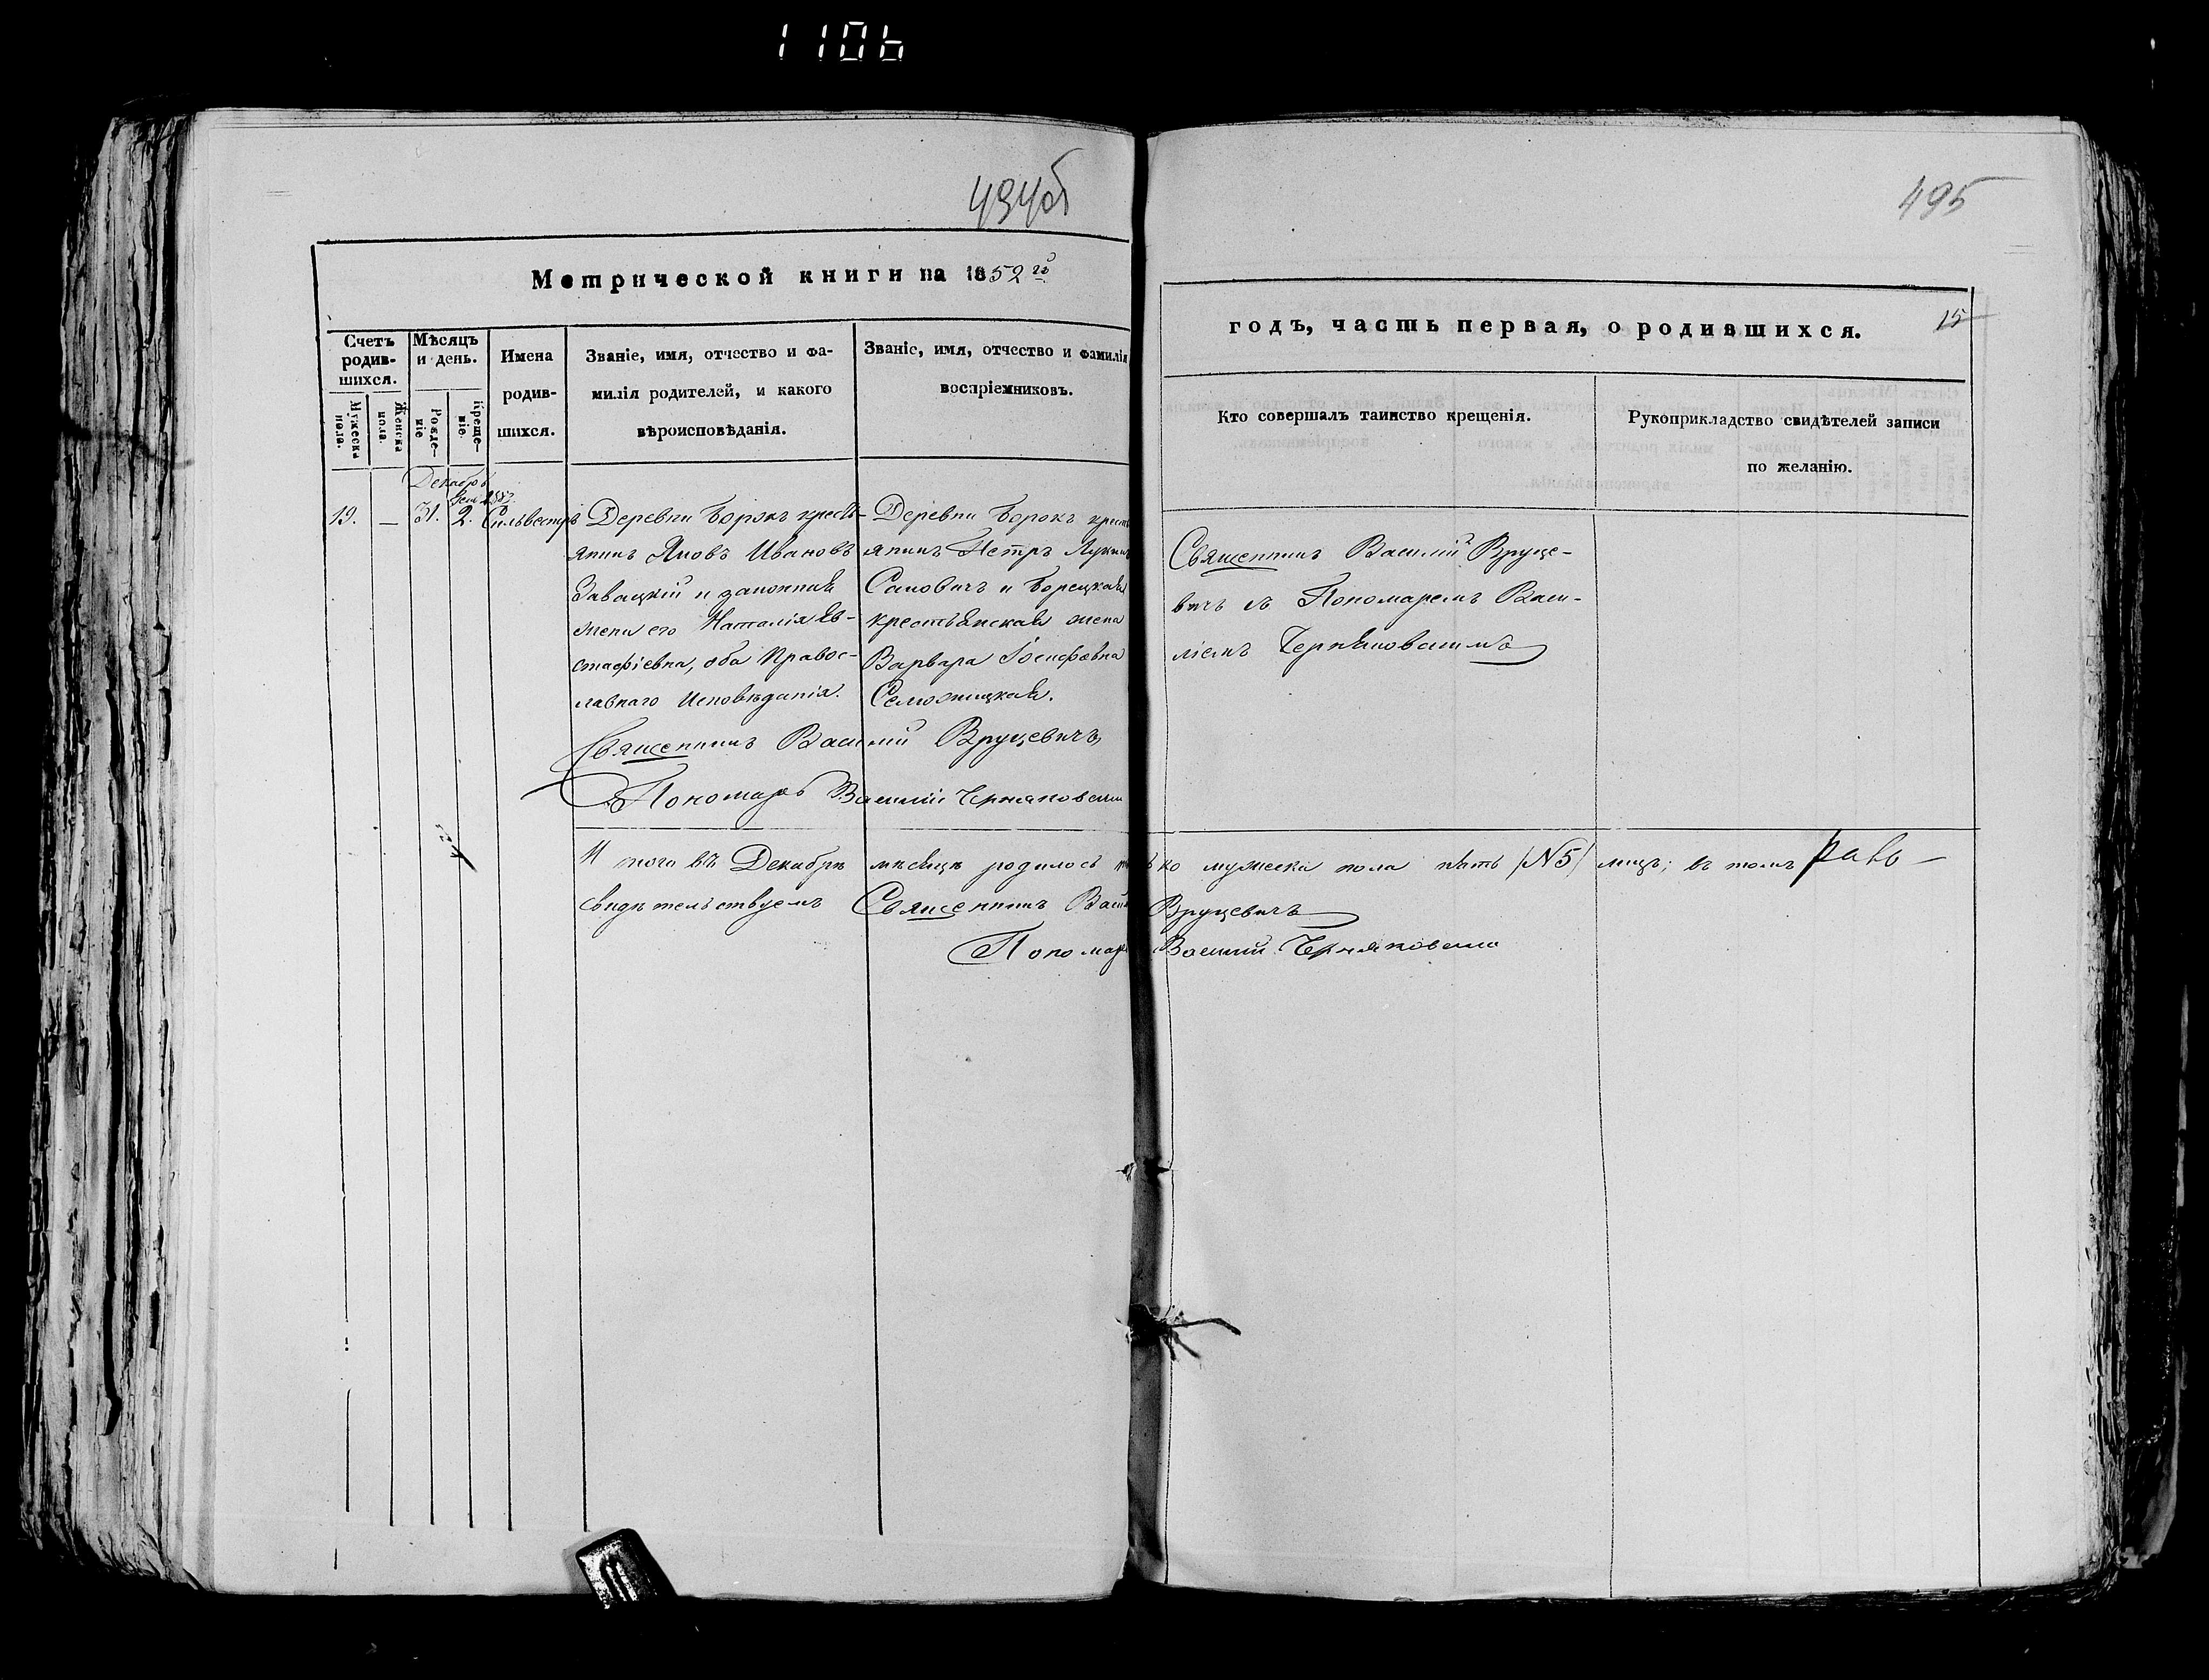 1106
494об
495
Метрической книги на 1852 го
годъ, часть первая, о родившихся.
15
Счетъ родив-шихся.
Мужеска пола.
Женска пола.
Мѣсяцъ и день.
Рожде-ніе
Креще-ніе.
Имена родив-шихся.
Званіе, имя, отчество и фа-
милія родителей, и какого
вѣроисповѣданія.
Званіе, имя, отчество и фамилія
воспріемниковъ.
Кто совершалъ таинство крещенія.
Рукоприкладство свидѣтелей записи
по желанію.
Декабрь
19. — 31. 2. Сильвестръ
Деревни Борокъ кресть-
янинъ Яковъ Ивановъ
Завацкій и законная
жена его Наталія Ев-
стафіевна, оба Правос-
лавнаго Исповѣданія.
Деревни Борокъ крест
янинъ Петръ Лукинъ
Самовичъ и Борецкая
крестьянская жена
Варвара Іосифовна
Священникъ Василій Вруце-
вичъ съ Пономаремъ Васи-
ліемъ Черняковскимъ
Священникъ Василий Вруцевичъ
Пономарь Василий Черняковский
Итого въ Декабрѣ мѣсяцѣ родилось только мужеска пола пять /N5/ лицъ; въ томъ
свидѣтельствуемъ Священникъ Васи Вруцевичъ
Пономарь Василий Черняковский